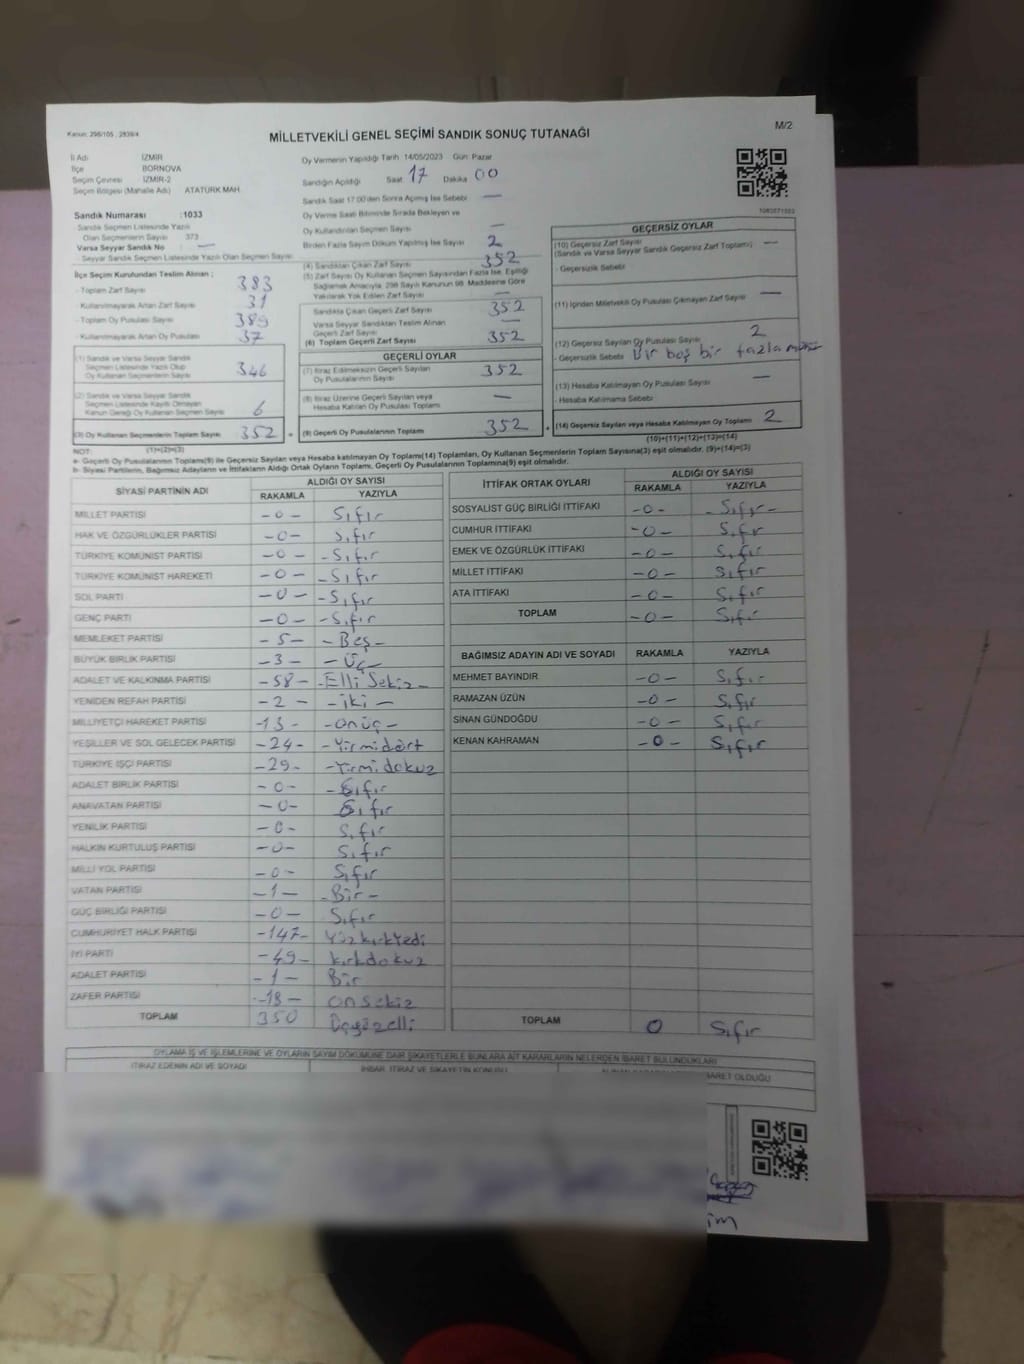 Kanun: 298/105 , 2839/4
MİLLETVEKİLİ GENEL SEÇİMİ SANDIK SONUÇ TUTANAĞI
M/2
İl Adı İZMİR
İlçe BORNOVA
Seçim Çevresi İZMİR-2
Seçim Bölgesi (Mahalle Adı) ATATÜRK MAH.
Sandık Numarası :1033
- Sandık Seçmen Listesinde Yazılı
Olan Seçmenlerin Sayısı 373
Varsa Seyyar Sandık No : —
- Seyyar Sandık Seçmen Listesinde Yazılı Olan Seçmen Sayısı
Oy Vermenin Yapıldığı Tarih 14/05/2023 Gün Pazar
Sandığın Açıldığı Saat 17 Dakika 00
Sandık Saat 17.00'den Sonra Açılmış İse Sebebi —
Oy Verme Saati Bitiminde Sırada Bekleyen ve
Oy Kullandırılan Seçmen Sayısı —
Birden Fazla Sayım Döküm Yapılmış İse Sayısı 2
İlçe Seçim Kurulundan Teslim Alınan ;
- Toplam Zarf Sayısı 383
- Kullanılmayarak Artan Zarf Sayısı 31
- Toplam Oy Pusulası Sayısı 389
- Kullanılmayarak Artan Oy Pusulası 37
(1) Sandık ve Varsa Seyyar Sandık
Seçmen Listesinde Yazılı Olup
Oy Kullanan Seçmenlerin Sayısı 346
(2) Sandık ve Varsa Seyyar Sandık
Seçmen Listesinde Kayıtlı Olmayan
Kanun Gereği Oy Kullanan Seçmen Sayısı 6
(3) Oy Kullanan Seçmenlerin Toplam Sayısı 352
(4) Sandıktan Çıkan Zarf Sayısı 352
(5) Zarf Sayısı Oy Kullanan Seçmen Sayısından Fazla İse, Eşitliği
Sağlamak Amacıyla, 298 Sayılı Kanunun 98. Maddesine Göre
Yakılarak Yok Edilen Zarf Sayısı —
Sandıkta Çıkan Geçerli Zarf Sayısı 352
Varsa Seyyar Sandıktan Teslim Alınan
Geçerli Zarf Sayısı —
(6) Toplam Geçerli Zarf Sayısı 352
GEÇERLİ OYLAR
(7) İtiraz Edilmeksizin Geçerli Sayılan
Oy Pusulalarının Sayısı 352
(8) İtiraz Üzerine Geçerli Sayılan veya
Hesaba Katılan Oy Pusulası Toplamı —
(9) Geçerli Oy Pusulalarının Toplamı 352
1083571553
GEÇERSİZ OYLAR
(10) Geçersiz Zarf Sayısı —
(Sandık ve Varsa Seyyar Sandık Geçersiz Zarf Toplamı)
- Geçersizlik Sebebi
(11) İçinden Milletvekili Oy Pusulası Çıkmayan Zarf Sayısı —
(12) Geçersiz Sayılan Oy Pusulası Sayısı 2
- Geçersizlik Sebebi Bir boş bir fazla
(13) Hesaba Katılmayan Oy Pusulası Sayısı —
- Hesaba Katılmama Sebebi
(14) Geçersiz Sayılan veya Hesaba Katılmayan Oy Toplamı 2
NOT: (1)+(2)=(3) (10)+(11)+(12)+(13)=(14)
a- Geçerli Oy Pusulalarının Toplamı(9) ile Geçersiz Sayılan veya Hesaba katılmayan Oy Toplam(14) Toplamları, Oy Kullanan Seçmenlerin Toplam Sayısına(3) eşit olmalıdır. (9)+(14)=(3)
b- Siyasi Partilerin, Bağımsız Adayların ve İttifakların Aldığı Ortak Oyların Toplamı, Geçerli Oy Pusulalarının Toplamına(9) eşit olmalıdır.
SİYASİ PARTİNİN ADI ALDIĞI OY SAYISI
RAKAMLA YAZIYLA
MİLLET PARTİSİ -0- Sıfır
HAK VE ÖZGÜRLÜKLER PARTİSİ -0- Sıfır
TÜRKİYE KOMÜNİST PARTİSİ -0- -Sıfır
TÜRKİYE KOMÜNİST HAREKETİ -0- -Sıfır
SOL PARTİ -0- -Sıfır
GENÇ PARTİ -0- -Sıfır
MEMLEKET PARTİSİ -5- -Beş-
BÜYÜK BİRLİK PARTİSİ -3- -Üç-
ADALET VE KALKINMA PARTİSİ -58- -Elli Sekiz-
YENİDEN REFAH PARTİSİ -2- -iki-
MİLLİYETÇİ HAREKET PARTİSİ -13- -onüç-
YEŞİLLER VE SOL GELECEK PARTİSİ -24- -Yirmidört
TÜRKİYE İŞÇİ PARTİSİ -29- -Yirmidokuz
ADALET BİRLİK PARTİSİ -0- -Sıfır
ANAVATAN PARTİSİ -0- Sıfır
YENİLİK PARTİSİ -0- Sıfır
HALKIN KURTULUŞ PARTİSİ -0- Sıfır
MİLLİ YOL PARTİSİ -0- Sıfır
VATAN PARTİSİ -1- -Bir-
GÜÇ BİRLİĞİ PARTİSİ -0- Sıfır
CUMHURİYET HALK PARTİSİ -147- Yüzkırkyedi
İYİ PARTİ -49- kırkdokuz
ADALET PARTİSİ -1- Bir
ZAFER PARTİSİ -18- onsekiz
TOPLAM 350 Üçyüzelli
İTTİFAK ORTAK OYLARI ALDIĞI OY SAYISI
RAKAMLA YAZIYLA
SOSYALİST GÜÇ BİRLİĞİ İTTİFAKI -0- -Sıfır-
CUMHUR İTTİFAKI -0- Sıfır
EMEK VE ÖZGÜRLÜK İTTİFAKI -0- Sıfır
MİLLET İTTİFAKI -0- Sıfır
ATA İTTİFAKI -0- Sıfır
TOPLAM -0- Sıfır
BAĞIMSIZ ADAYIN ADI VE SOYADI RAKAMLA YAZIYLA
MEHMET BAYINDIR -0- Sıfır
RAMAZAN ÜZÜN -0- Sıfır
SİNAN GÜNDOĞDU -0- Sıfır
KENAN KAHRAMAN -0- Sıfır
TOPLAM 0 Sıfır
OYLAMA İŞ VE İŞLEMLERİNE VE OYLARIN SAYIM DÖKÜMÜNE DAİR ŞİKAYETLERLE BUNLARA AİT KARARLARIN NELERDEN İBARET BULUNDUKLARI
İTİRAZ EDENİN ADI VE SOYADI İHBAR, İTİRAZ VE ŞİKAYETİN KONUSU BARET OLDUĞU